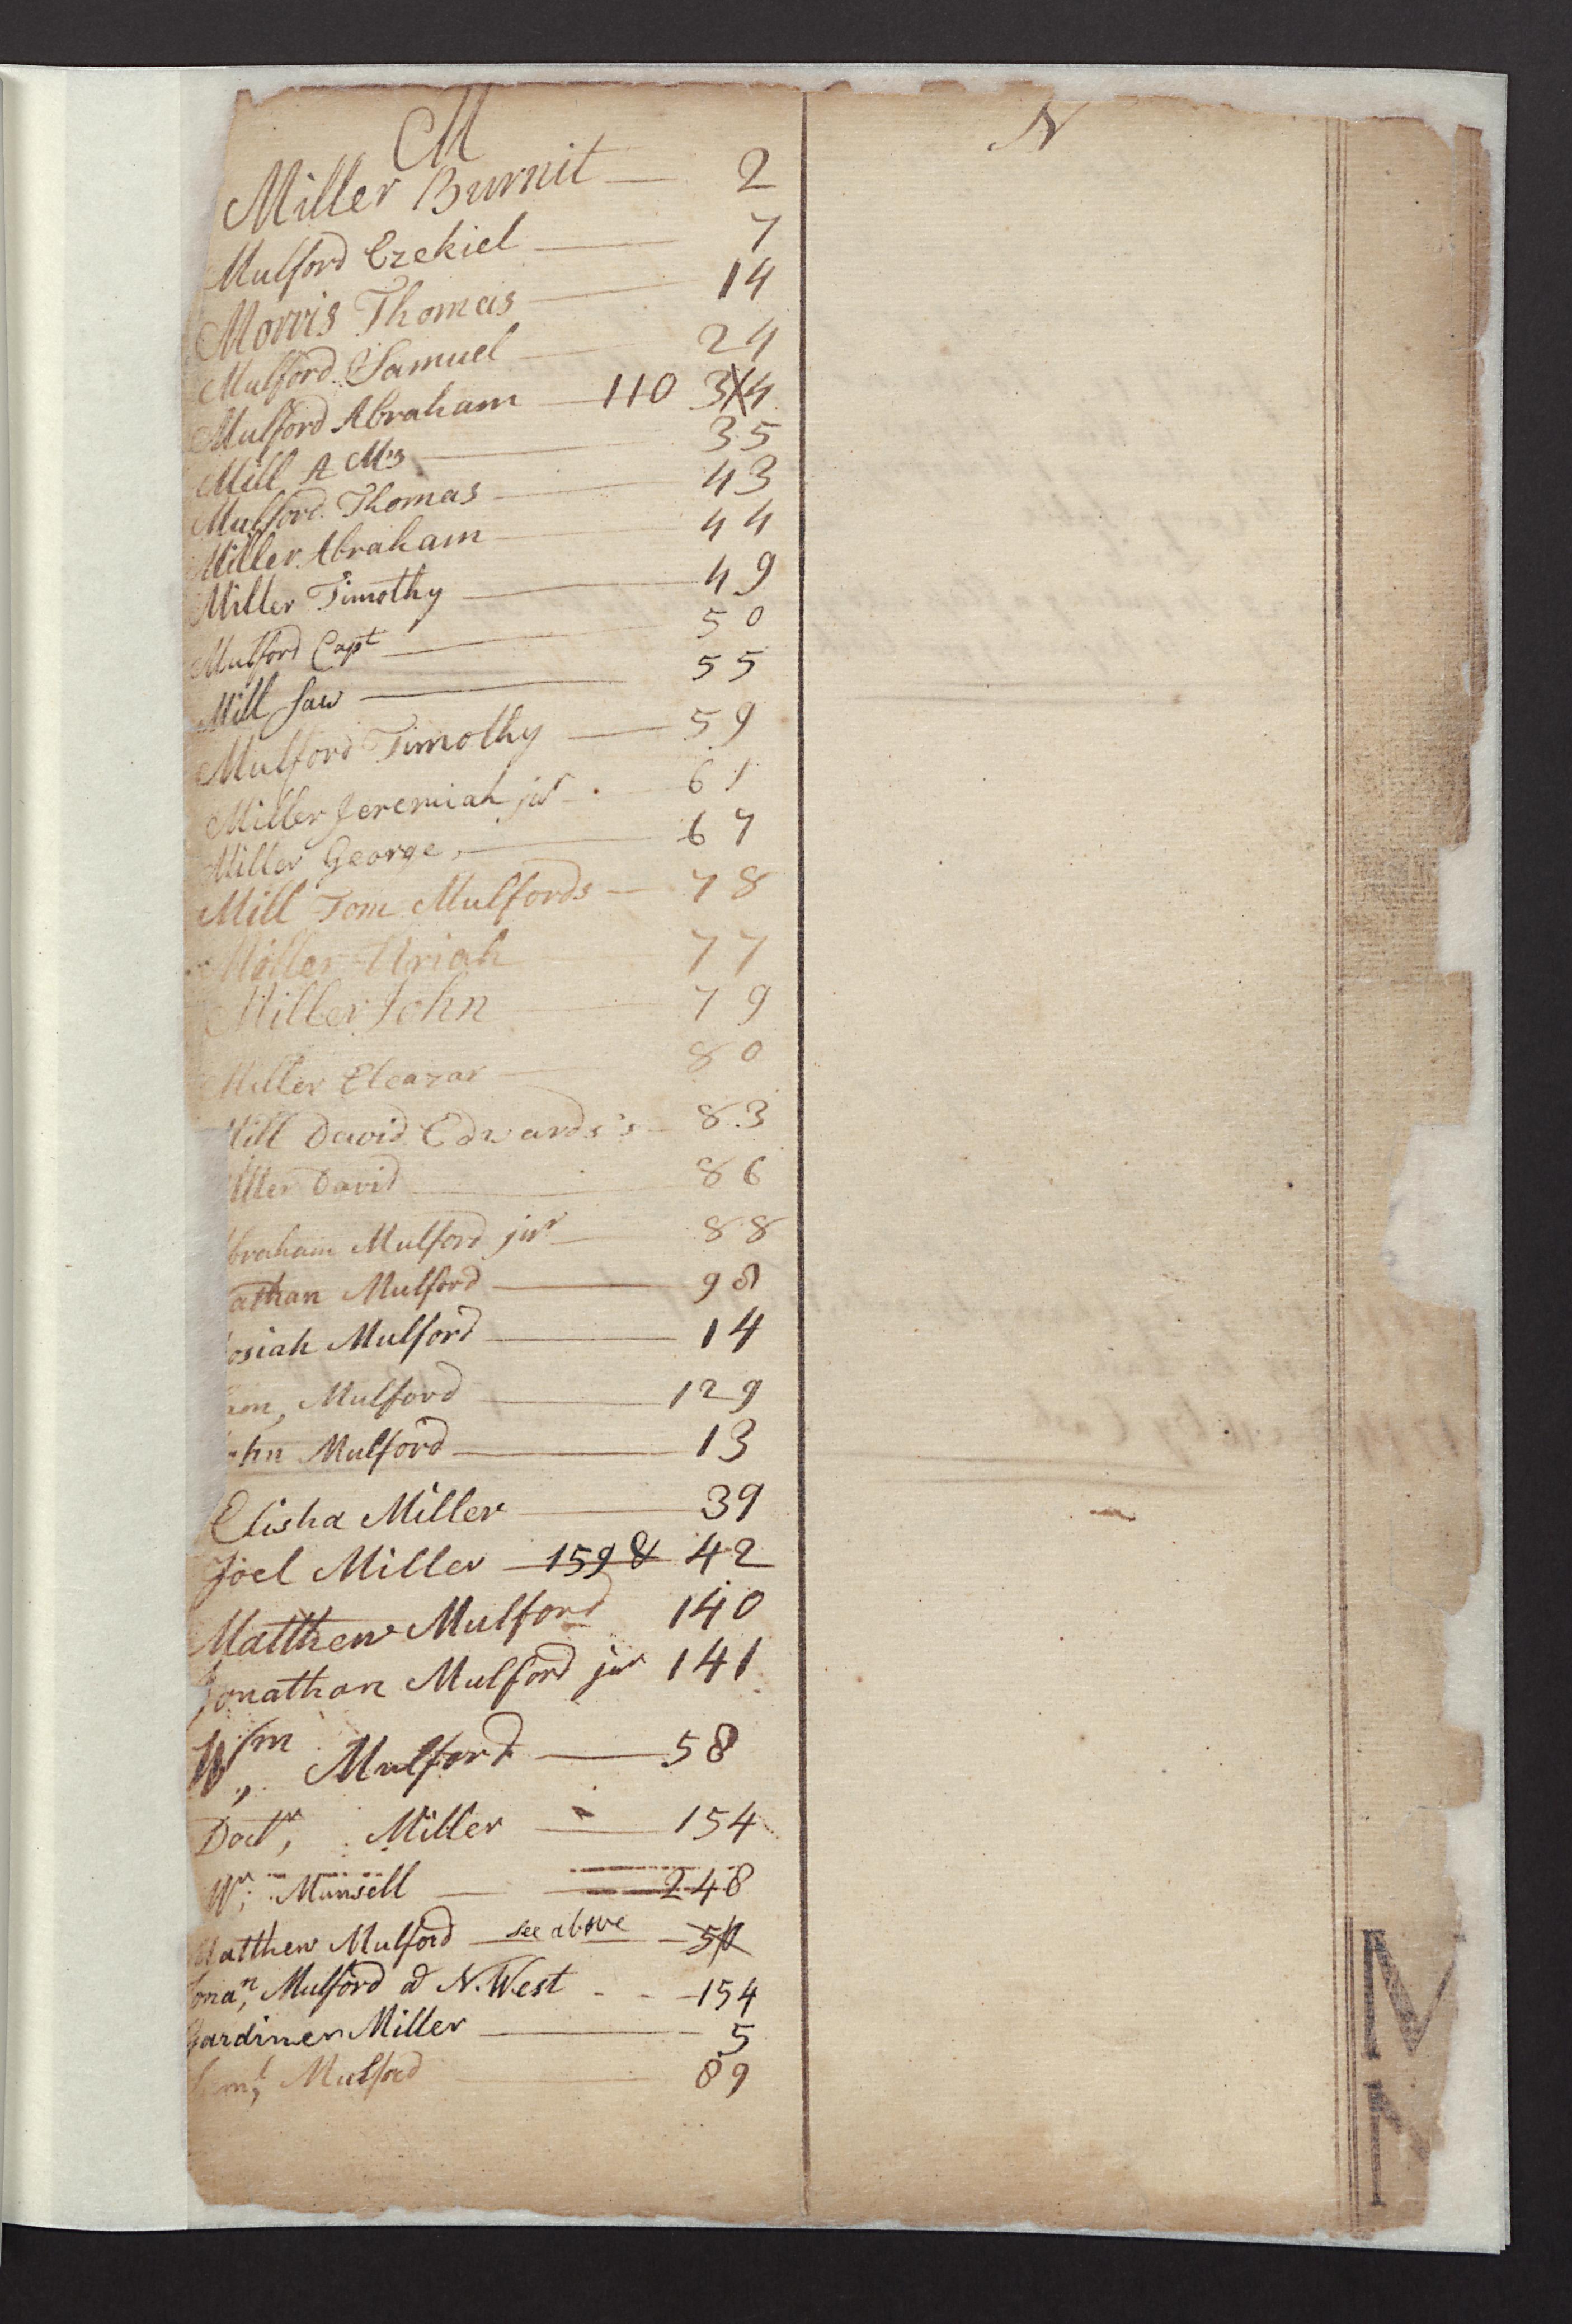 M
Miller Burnit — 2
Mulford Ezekiel — 7
Morris Thomas — 14
Mulford Samuel — 24
Mulford Abraham — 110 34
Mill A Mrs — 35
Mulford Thomas — 43
Miller Abraham — 44
Miller Timothy — 49
Mulford Capt — 50
Mill Saw — 55
Mulford Timothy — 59
Miller Jeremiah jur — 61
Miller George, — 67
Mill Tom Mulfords — 78
Miller Uriah — 77
Miller John — 79
Miller Eleazar — 80
Mill David Edwards's — 83
iller David — 86
braham Mulford jur — 88
athan Mulford — 98
osiah Mulford — 14
Mulford — 129
hn Mulford — 13
Elisha Miller — 39
Joel Miller — 159 & 42
Matthew Mulford 140
Jonathan Mulford jur 141
Wm, Mulford — 58
Doctr, Miller — 154
Mr, Munsell — 248
Matthew Mulford — see above — 50
Jonan, Mulford at N. West - - 154
Gardiner Miller — 5
Saml, Mulford — 89
N
M
N